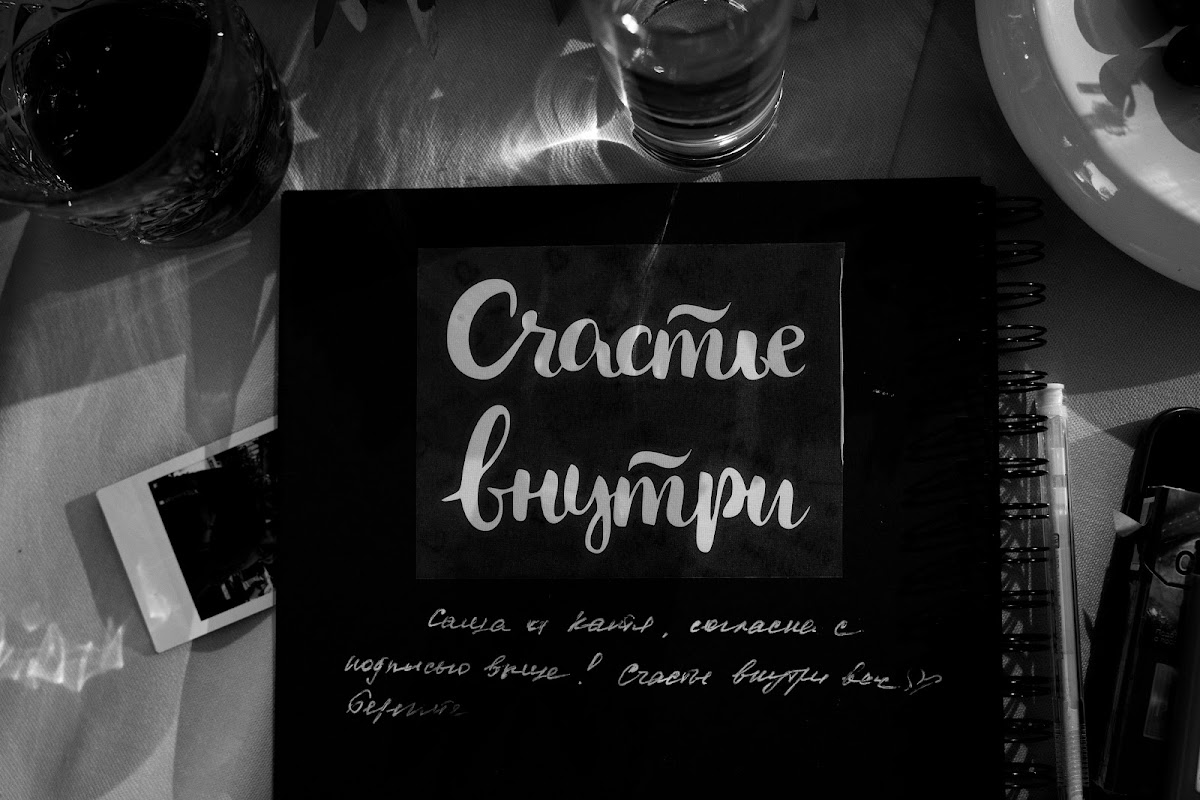 Счастье
внутри
Саша и Катя, согласна с
подписью выше! Счастье внутри вас
Берегите